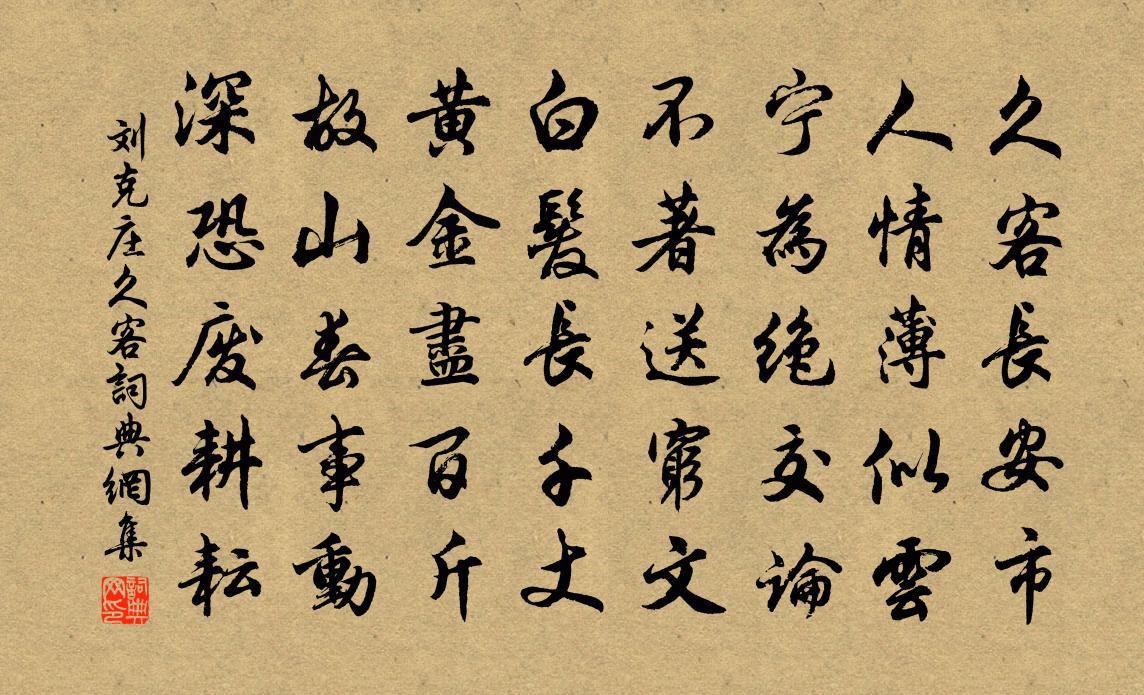 久客長安市
人情薄似雲
宁為絶交論
不著送窮文
白髮長千丈
黃金盡百斤
故山春事動
深恐廢耕耘
刘克庄久客詞典網集
詞典网印